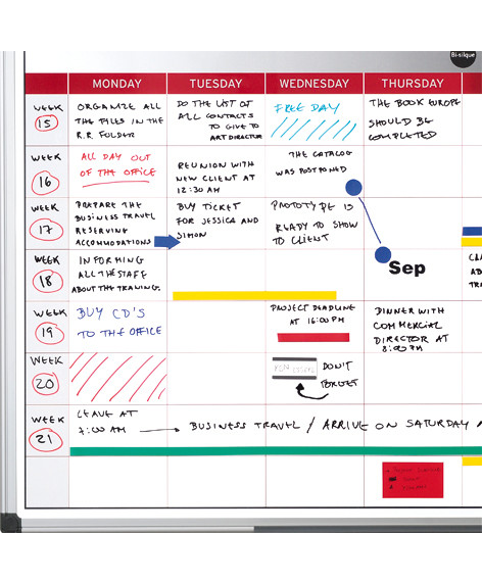 Bi-silque
MONDAY TUESDAY WEDNESDAY THURSDAY
WEEK
15
ORGANIZE ALL
THE FILES IN THE
R.R FOLDER
DO THE LIST OF
ALL CONTACTS
TO GIVE TO
ART DIRECTOR
FREE DAY
THE BOOK EUROPE
SHOULD BE
COMPLETED
WEEK
16
ALL DAY OUT
OF THE OFFICE
REUNION WITH
NEW CLIENT AT
12:30 AM
THE CATALOG
WAS POSTPONED
WEEK
17
PREPARE THE
BUSINESS TRAVEL
RESERVING
ACCOMMODATIONS
BUY TICKET
FOR JESSICA AND
SIMON
PROTOTYPE IS
READY TO SHOW
TO CLIENT
WEEK
18
INFORMING
ALL THE STAFF
ABOUT THE TRAINING.
Sep
WEEK
19
BUY CD'S
TO THE OFFICE
PROJECT DEADLINE
AT 16:00 PM
DINNER WITH
COMMERCIAL
DIRECTOR AT
8:00 PM
WEEK
20
DON'T
FORGET
WEEK
21
LEAVE AT
7:00 AM
BUSINESS TRAVEL / ARRIVE ON SATURDAY